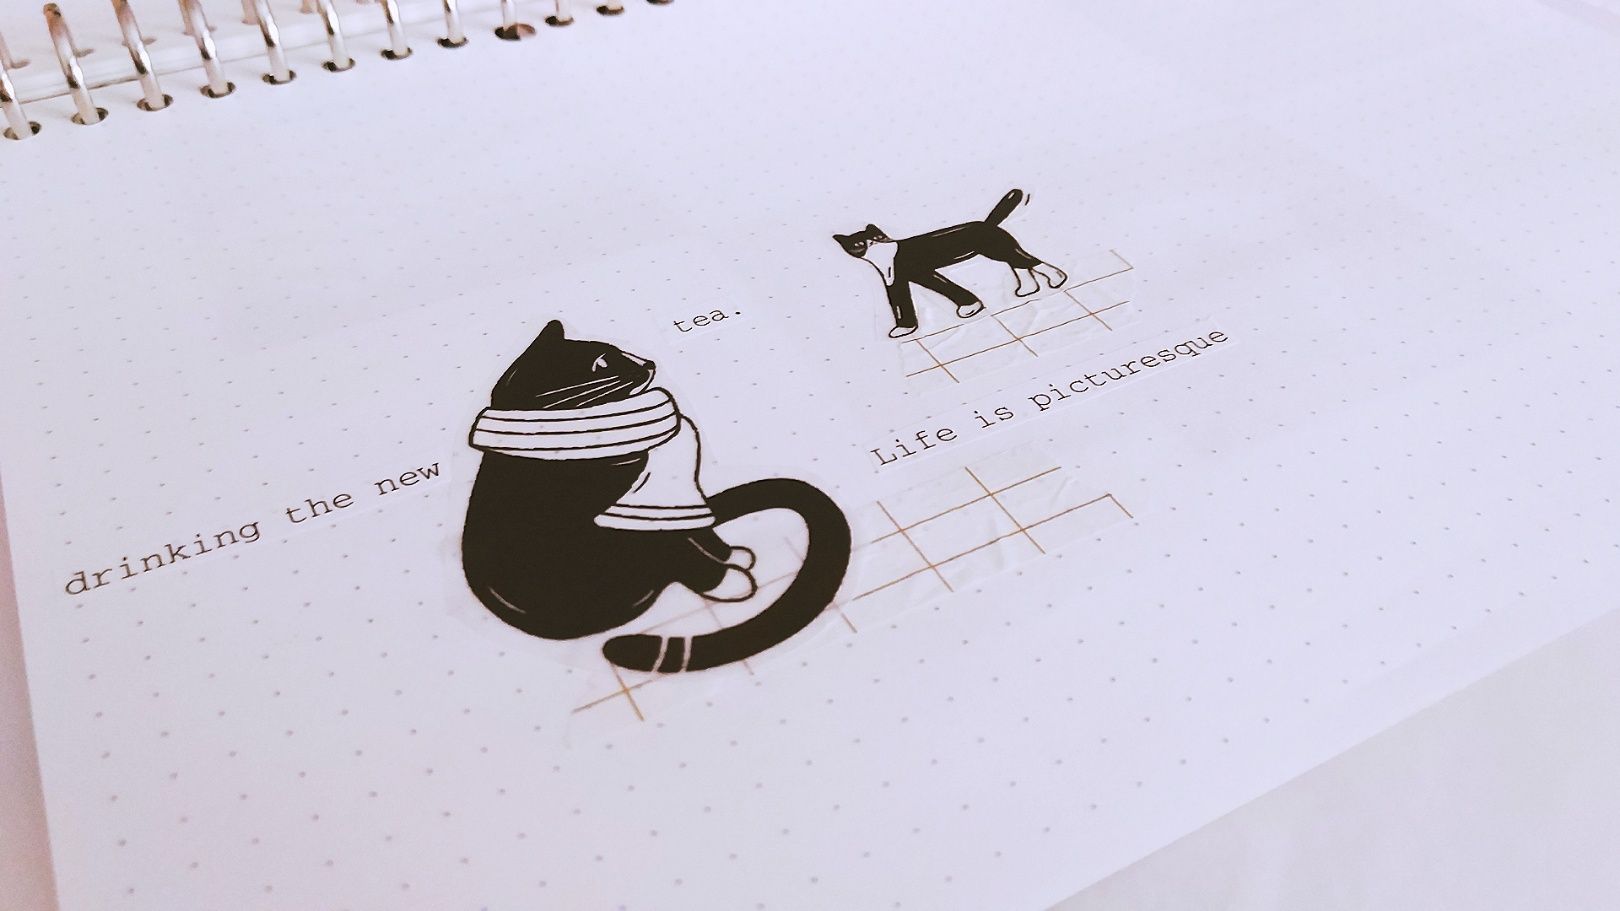 drinking the new
tea.
Life is picturesque